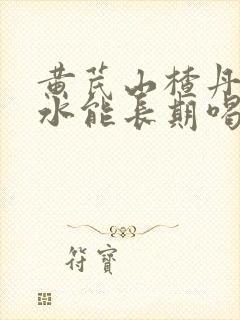 黄芪山楂丹
水能长期喝
符寶